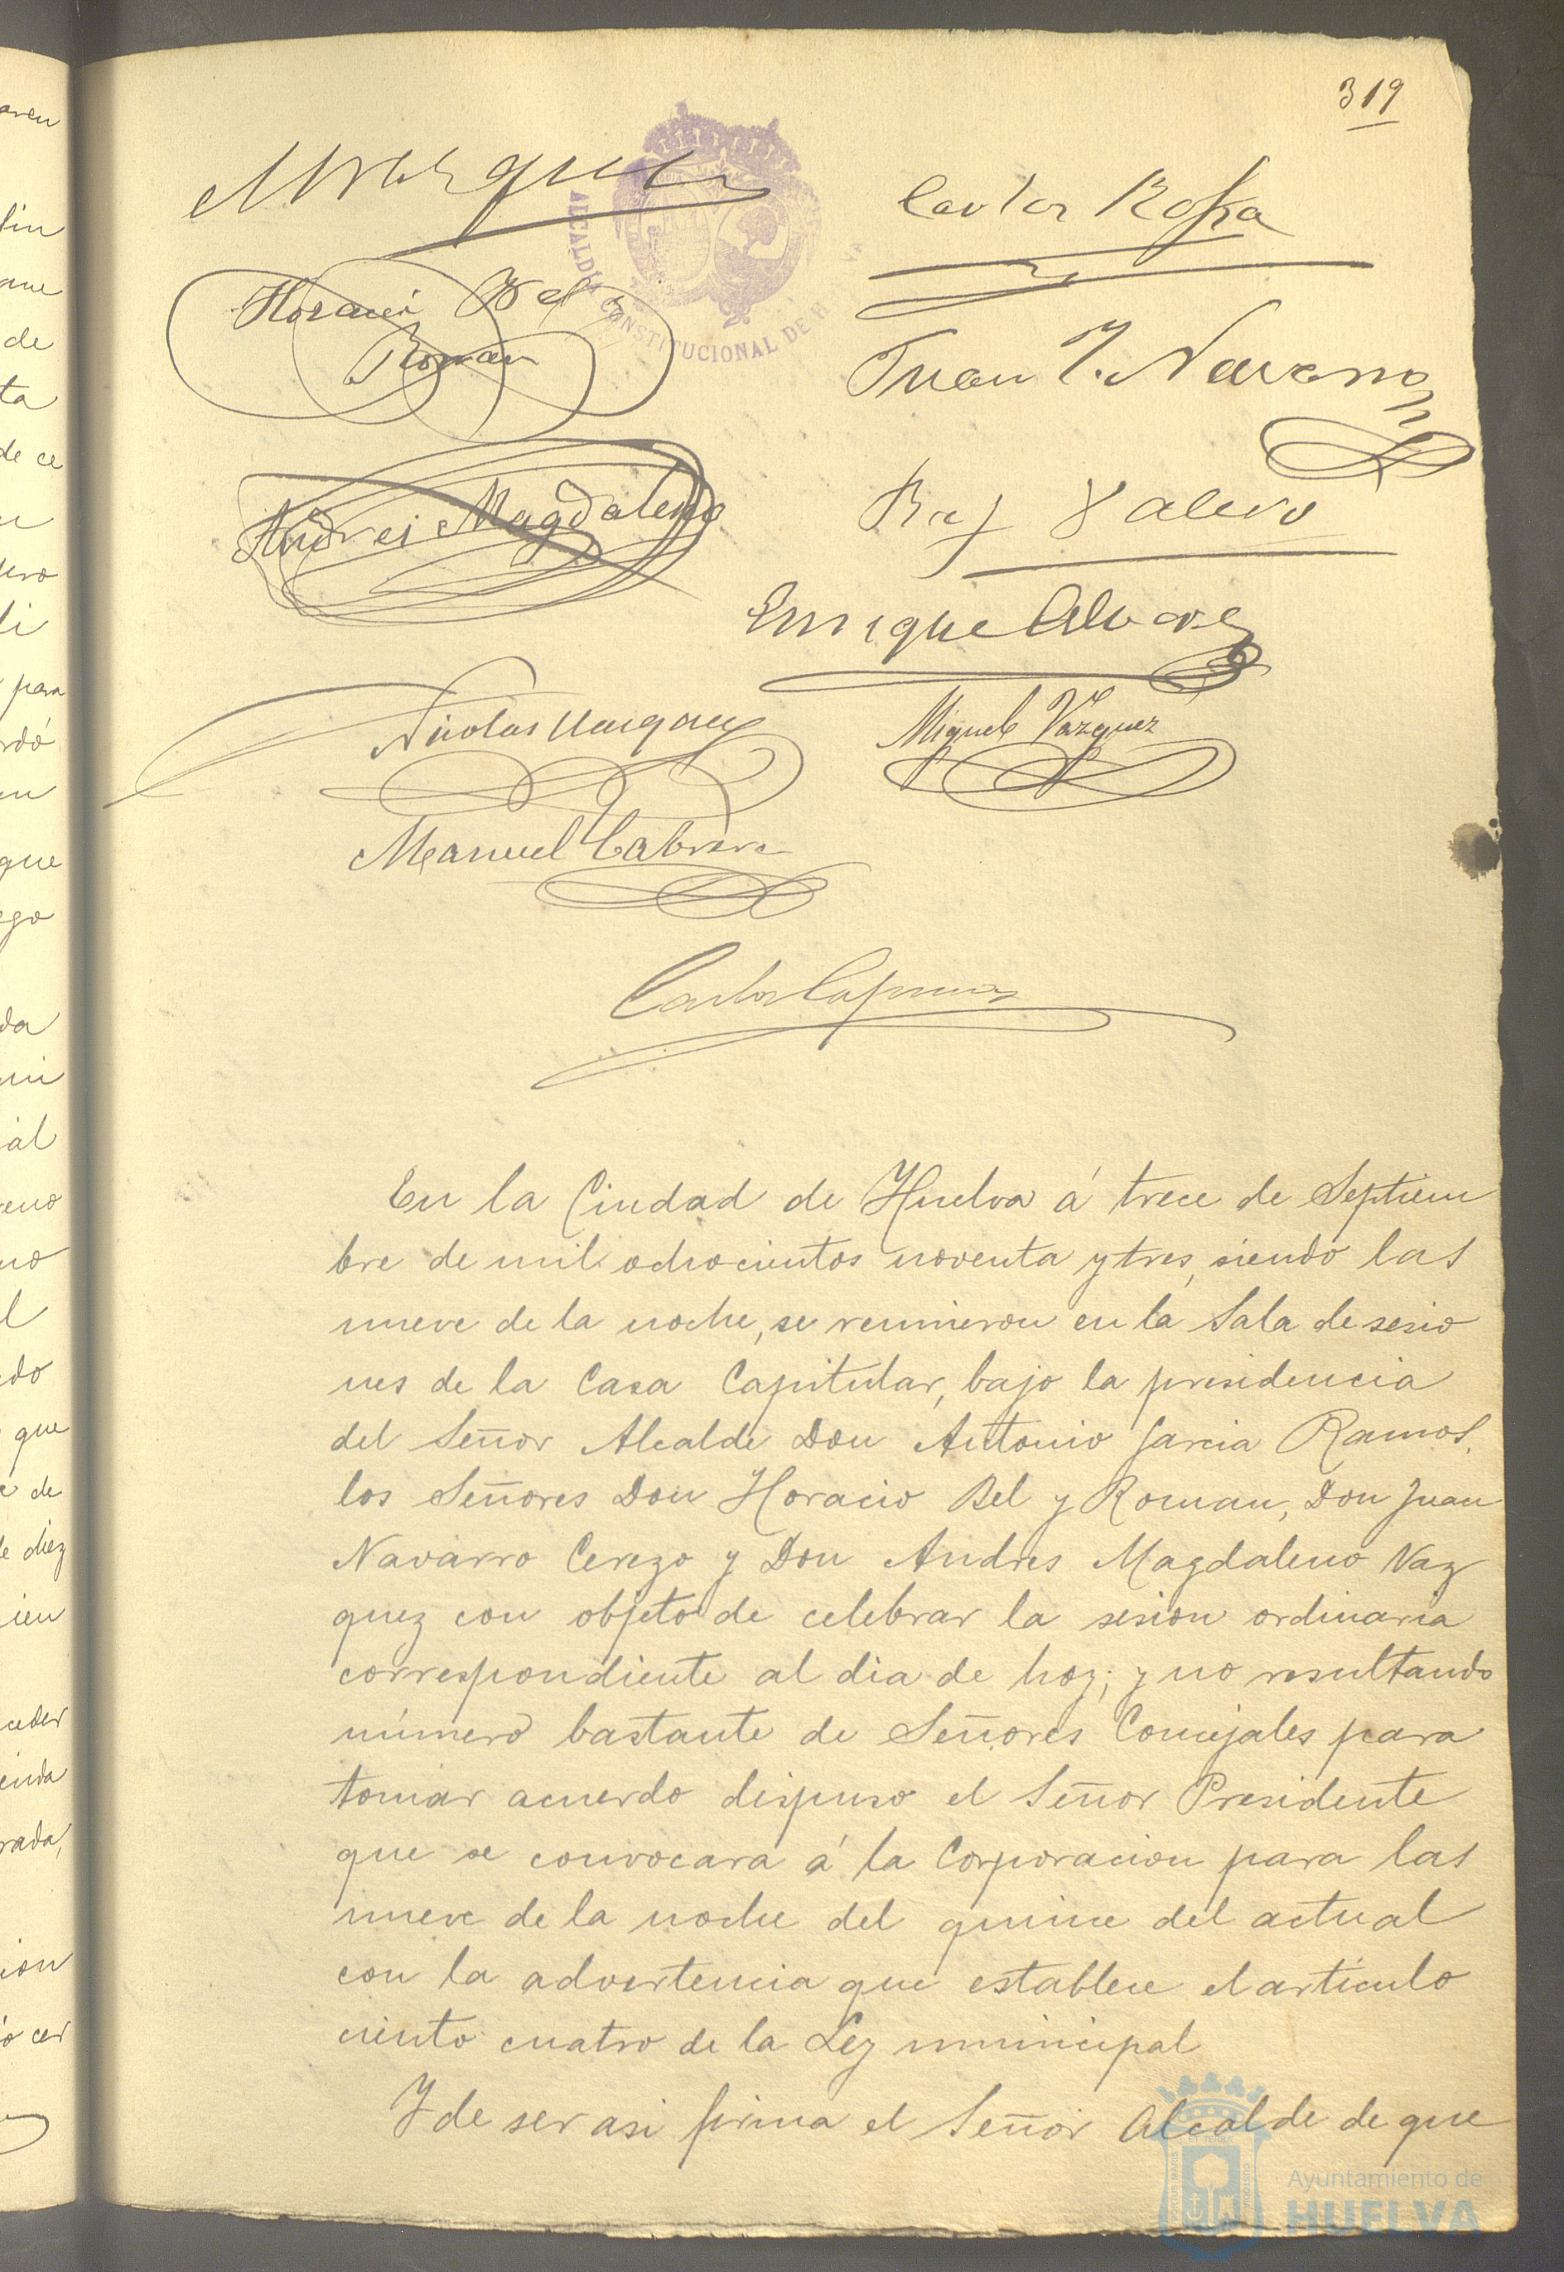 319
Marquez
Carlos Rofa
ALCALDÍA CONSTITUCIONAL DE H
Horacio Bel y
Roman
Juan J. Navarro
Andres Magdaleno
Raf Valero
Enrique Alvarez
Nicolas Marquez
Miguel Vázquez
Manuel Cabrera
Carlos
En la Ciudad de Huelva á trece de Septiem
bre de mil ochocientos noventa y tres, siendo las
nueve de la noche, se reunieron en la Sala de sesio
nes de la Casa Capitular, bajo la presidencia
del Señor Alcalde Don Antonio Garcia Ramos,
los Señores Don Horacio Bel y Roman, Don Juan
Navarro Cerezo y Don Andres Magdaleno Vaz
quez con objeto de celebrar la sesion ordinaria
correspondiente al dia de hoy; y no resultando
número bastante de Señores Concejales para
tomar acuerdo dispuso el Señor Presidente
que se convocara á la Corporacion para las
nueve de la noche del quince del actual
con la advertencia que establece el articulo
ciento cuatro de la Ley municipal
Y de ser asi firma el Señor Alcalde de que
Ayuntamiento de
HUELVA